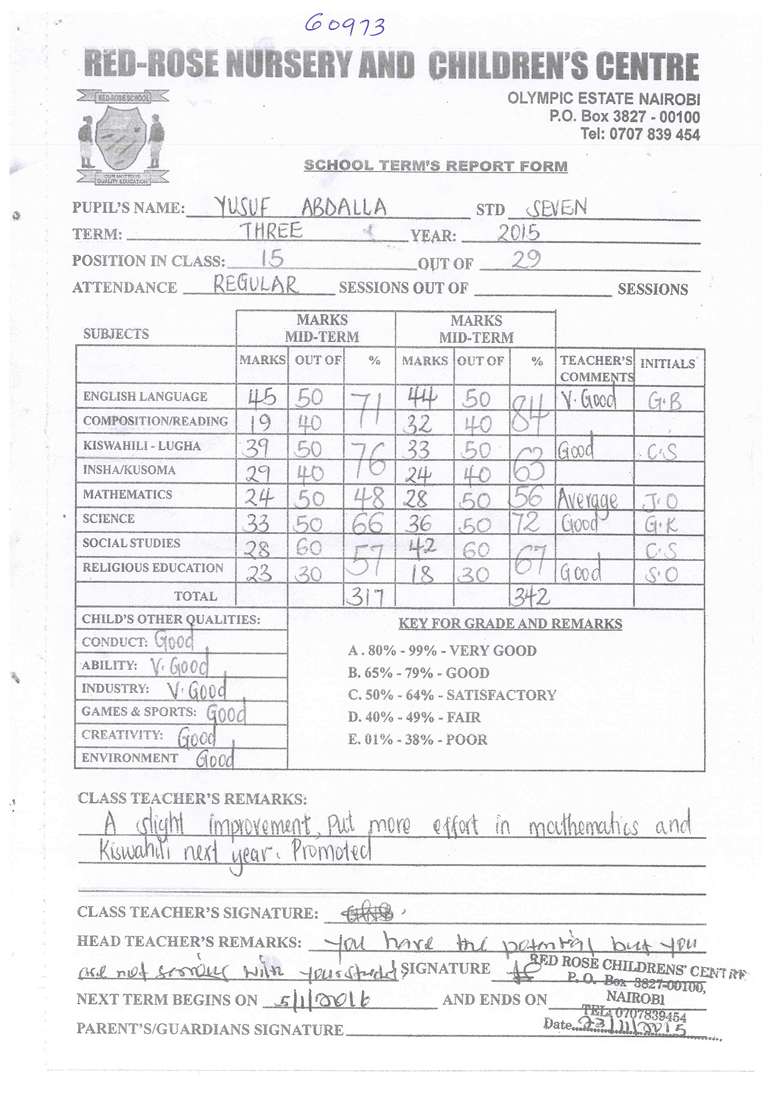 60973
RED-ROSE NURSERY AND CHILDREN'S CENTRE
RED-ROSE SCHOOL
OLYMPIC ESTATE NAIROBI
P.O. Box 3827 - 00100
Tel: 0707 839 454
QUALITY EDUCATION
SCHOOL TERM'S REPORT FORM
PUPIL'S NAME: YUSUF ABDALLA STD SEVEN
TERM: THREE YEAR: 2015
POSITION IN CLASS: 15 OUT OF 29
ATTENDANCE REGULAR SESSIONS OUT OF SESSIONS
SUBJECTS MARKS MID-TERM MARKS MID-TERM
MARKS OUT OF % MARKS OUT OF % TEACHER'S COMMENTS INITIALS
ENGLISH LANGUAGE 45 50 71 44 50 84 V. Good G.B
COMPOSITION/READING 19 40 32 40
KISWAHILI - LUGHA 39 50 76 33 50 63 Good C.S
INSHA/KUSOMA 29 40 24 40
MATHEMATICS 24 50 48 28 50 56 Average J.O
SCIENCE 33 50 66 36 50 72 Good G.K
SOCIAL STUDIES 28 60 57 42 60 67 C.S
RELIGIOUS EDUCATION 23 30 18 30 Good S.O
TOTAL 317 342
CHILD'S OTHER QUALITIES:
CONDUCT: Good
ABILITY: V. Good
INDUSTRY: V. Good
GAMES & SPORTS: Good
CREATIVITY: Good
ENVIRONMENT Good
KEY FOR GRADE AND REMARKS
A . 80% - 99% - VERY GOOD
B. 65% - 79% - GOOD
C. 50% - 64% - SATISFACTORY
D. 40% - 49% - FAIR
E. 01% - 38% - POOR
CLASS TEACHER'S REMARKS:
A slight improvement, Put more effort in mathematics and
Kiswahili next year. Promoted
CLASS TEACHER'S SIGNATURE:
HEAD TEACHER'S REMARKS: You have the potential but you
are not serious with your SIGNATURE
RED ROSE CHILDRENS' CENTRE
P. O. Box 3827-00100,
NAIROBI
TEL: 0707839454
Date 23/11/2015
NEXT TERM BEGINS ON 5/1/2016 AND ENDS ON
PARENT'S/GUARDIANS SIGNATURE